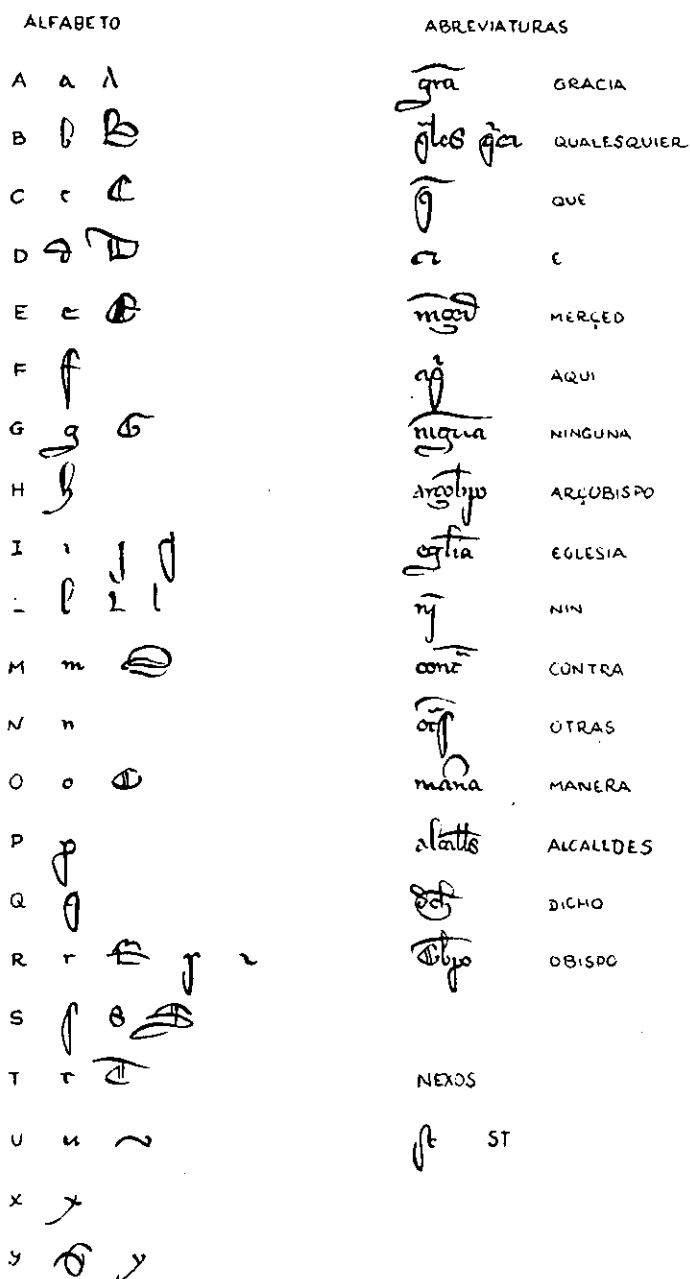 ALFABETO
A a λ
B b B
C c C
D d D
E e E
F f
G g G
H h
I ı j J
- l L l
M m M
N n
O o O
P p
Q q
R r R r r
S ſ s S
T t T
U u
X x
Y y
ABREVIATURAS
gra GRACIA
qles qer QUALESQUIER
q QUE
E
mçed MERÇED
aq AQUI
nigua NINGUNA
arçobpo ARÇOBISPO
eglia EGLESIA
nj NIN
cont CONTRA
otſ OTRAS
mana MANERA
alcalls ALCALLDES
dch DICHO
obpo OBISPO
NEXOS
ſt ST